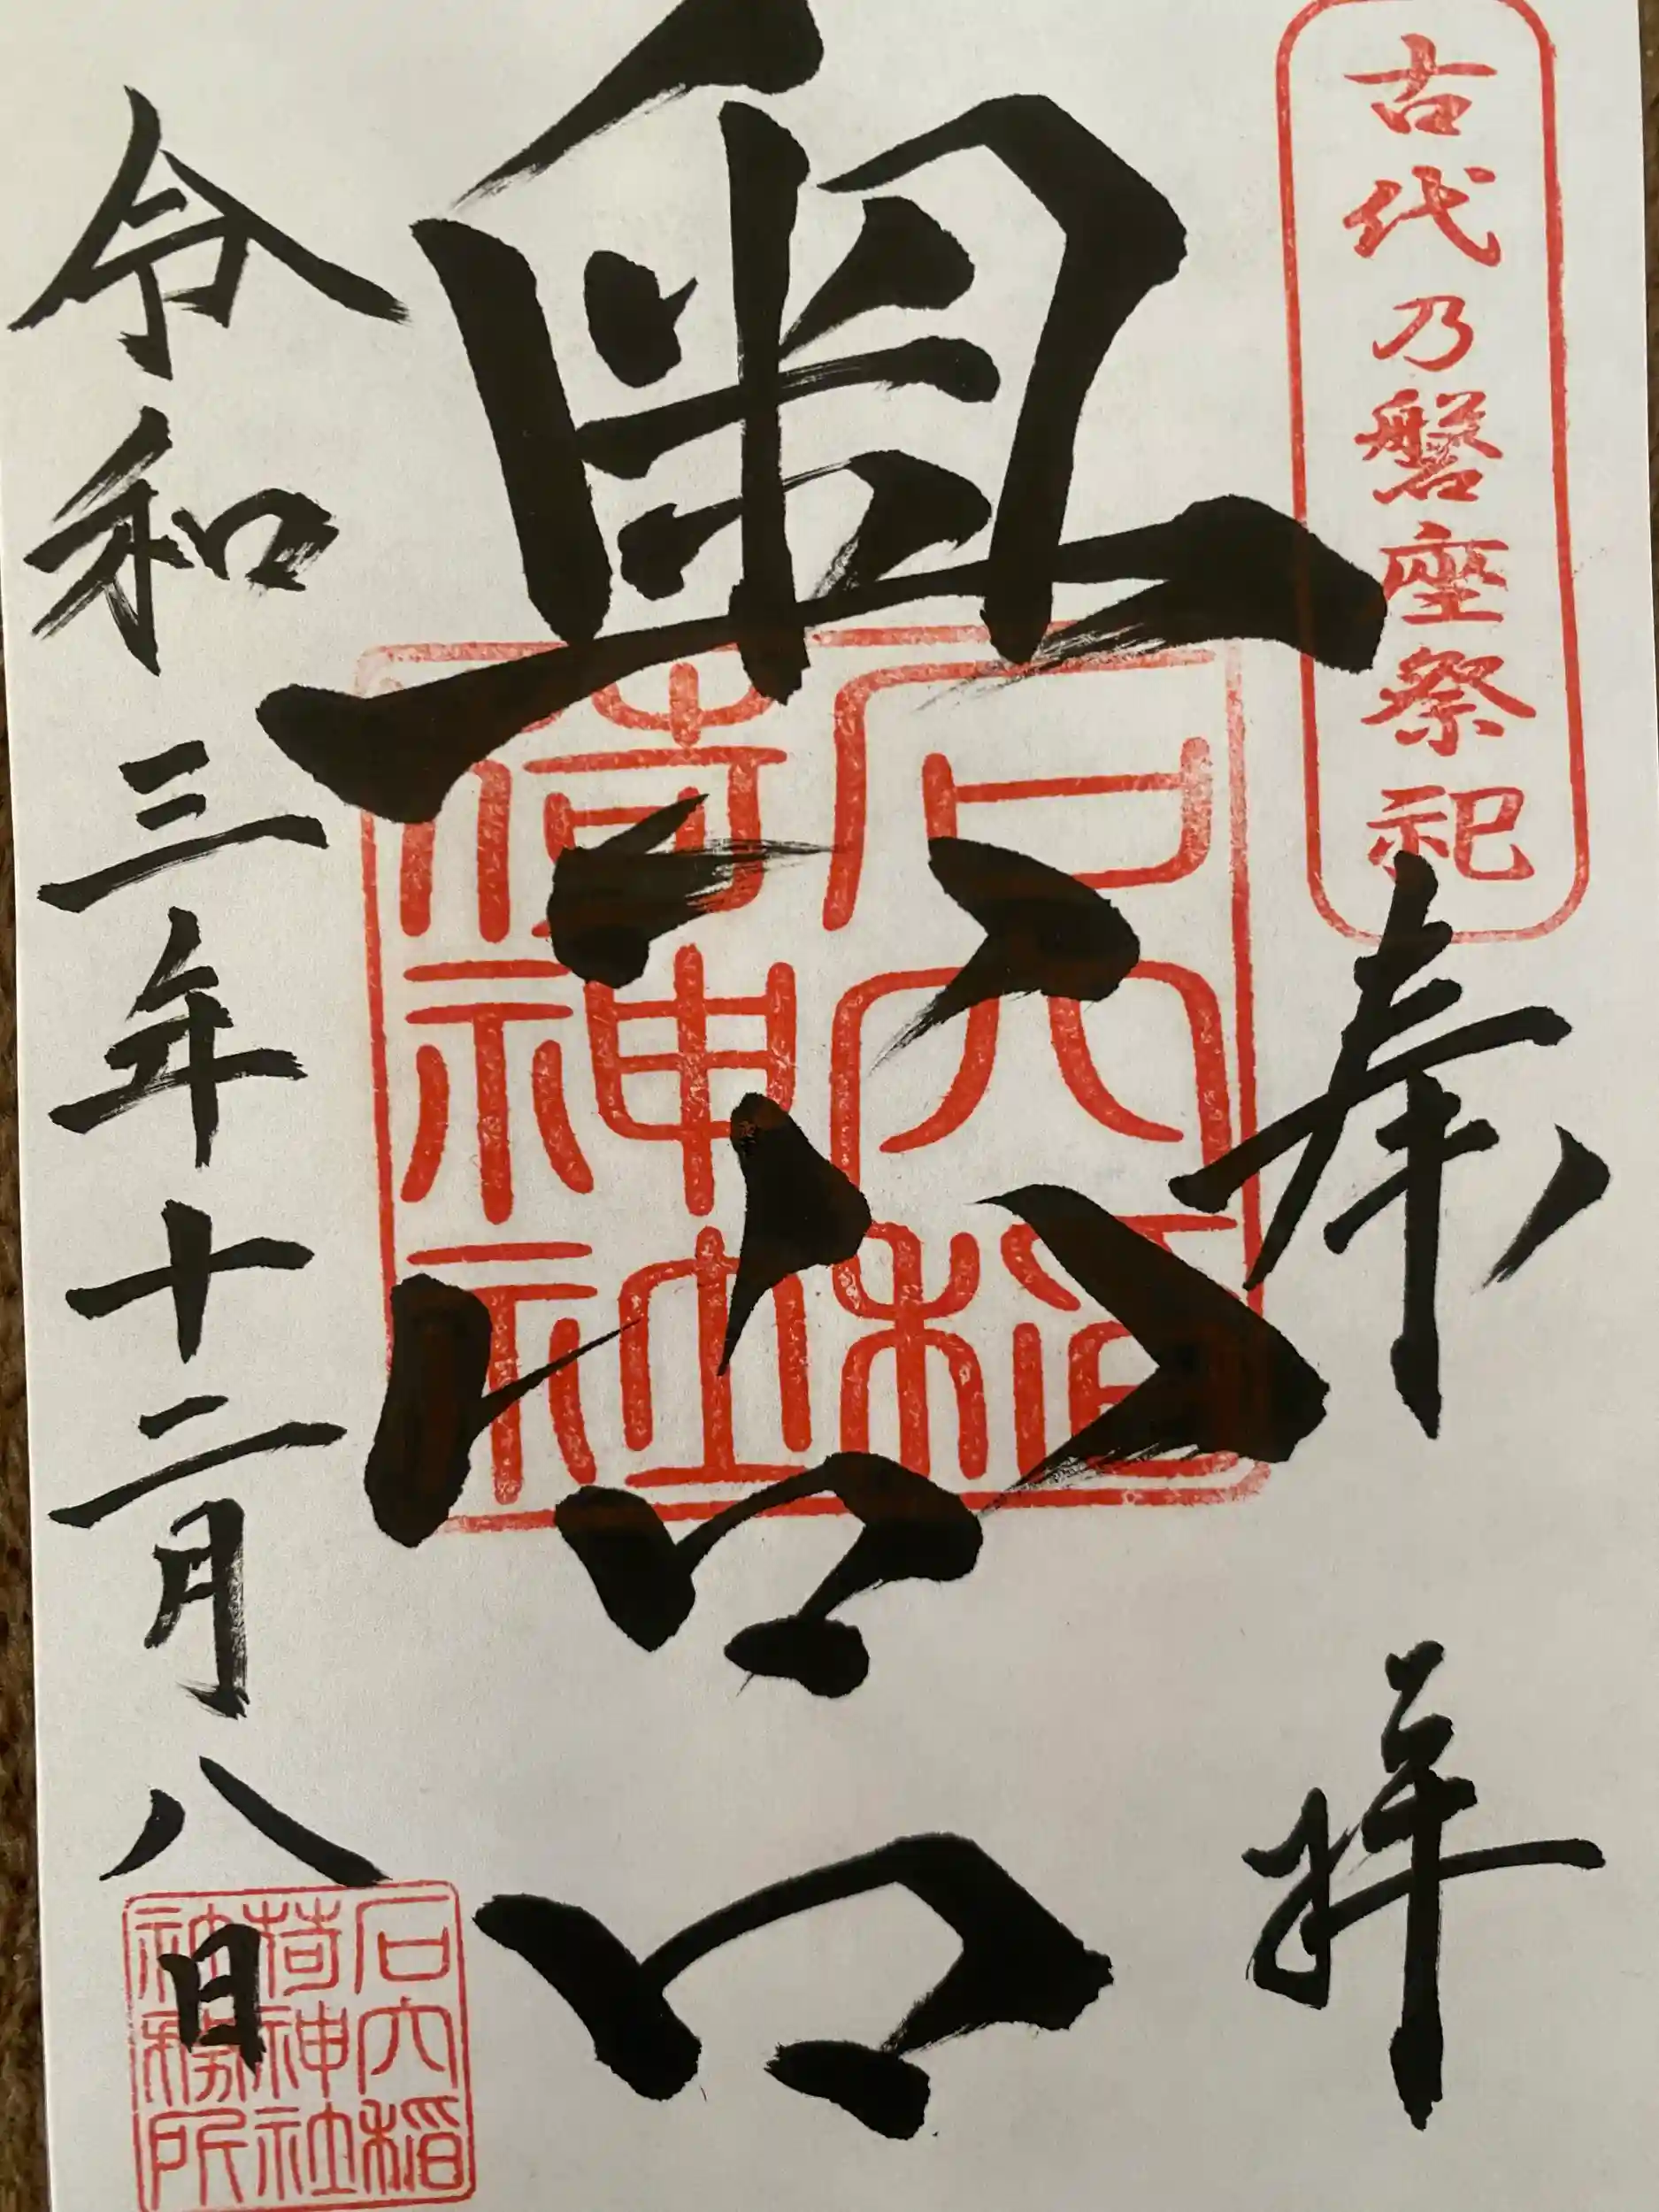 古代乃磐座祭祀
奉拝
奥宮
石穴稲荷神社
令和三年十二月八日
石穴稲荷神社社務所